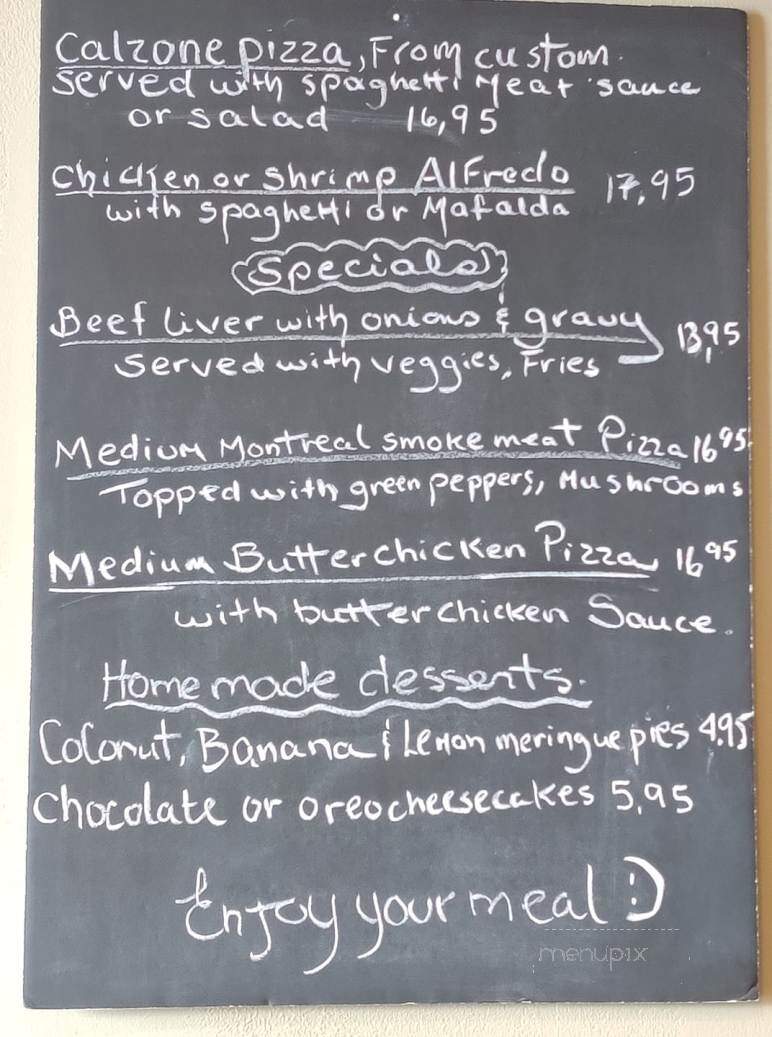 Calzone pizza, From custom.
Served with spaghetti Meat sauce
or salad 16,95
Chicken or Shrimp AlFredo 17,95
with spaghetti or Mafalda
Specials
Beef liver with onions & gravy 13,95
Served with veggies, Fries
Medium Montreal smoke meat Pizza 16 95
Topped with green peppers, Mushrooms
Medium Butter chicken Pizza 16 95
with butter chicken Sauce.
Home made desserts.
Coconut, Banana & Lemon meringue pies 4.95
Chocolate or oreo cheesecakes 5,95
Enjoy your meal :)
menupix